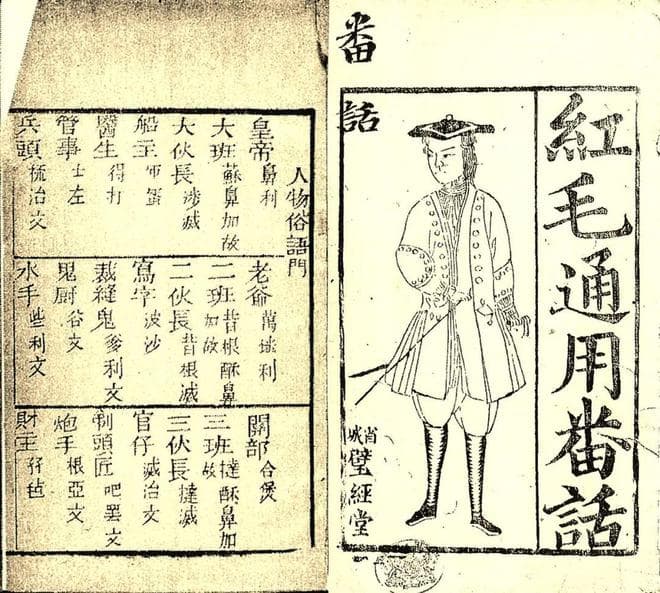 紅毛通用番話
番話
省城璧經堂
人物俗語門
皇帝 鼻利 老爺 萬珠利 關部 合煲
大班 蘇鼻加故 二班 昔根酥鼻加故 三班 撻酥鼻加故
大伙長 涉滅 二伙長 昔根滅 三伙長 撻滅
船主 蛋 寫字 波沙 官仔 滅治文
醫生 得打 裁縫鬼 爹利文 剃頭匠 吧罷文
管事 士左 鬼厨 谷文 炮手 根亞文
兵頭 梳治文 水手 些利文 財主 孖毡